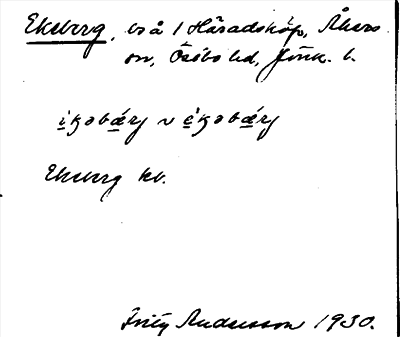 Ekeberg, bså 1 Häradsköp, Åkers
sn, Östbo hd, Jönk. l.
i̱kəbæ̱rj ~ e̱kəbæ̱rj
Ekeberg kb.
Fritz Andersson 1930.